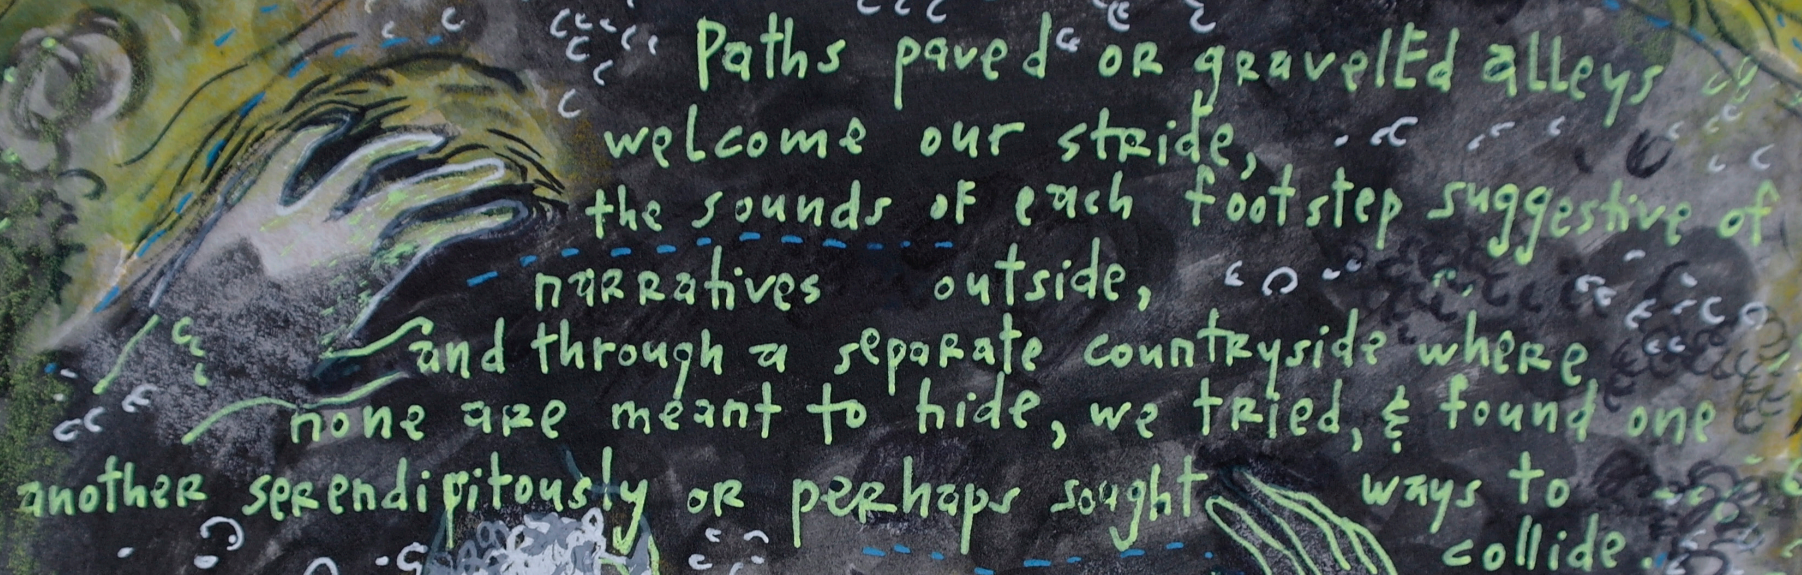 Paths paved or gravellEd alleys
welcome our stride,
the sounds of each footstep suggestive of
narratives outside,
and through a separate countryside where
none are meant to hide, we tried, & found one
another serendipitously or perhaps sought ways to
collide.